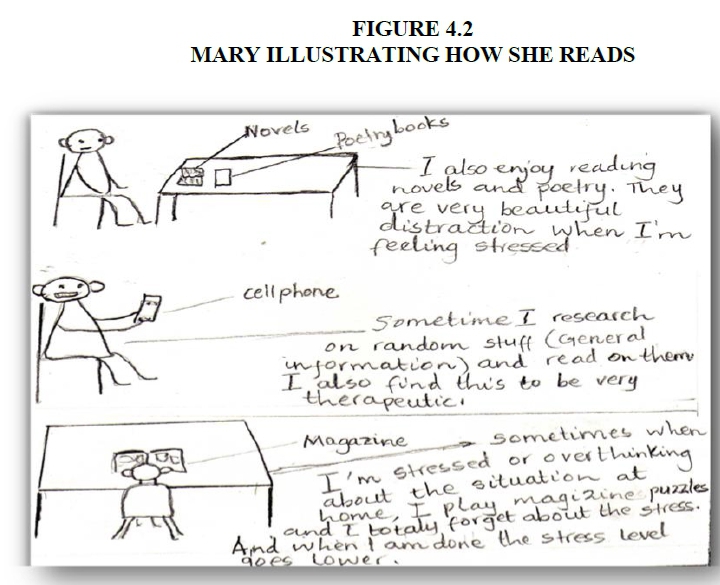 FIGURE 4.2
MARY ILLUSTRATING HOW SHE READS
Novels
Poetry books
I also enjoy reading
novels and poetry. They
are very beautiful
distraction when I'm
feeling stressed
cellphone
Sometime I research
on random stuff (General
information) and read on them
I also find this to be very
therapeutic.
Magazine
sometimes when
I'm stressed or overthinking
about the situation at
home, I play magizine puzzles
and I totaly forget about the stress.
And when I am done the stress level
goes lower.